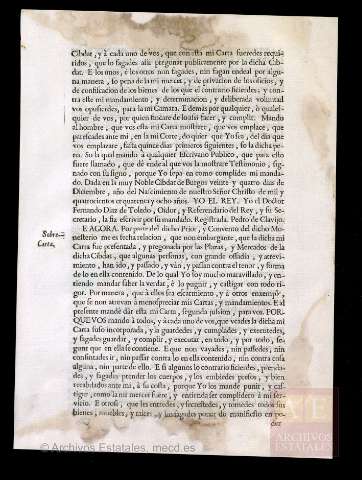 Cibdat, y à cada uno de vos, que con esta mi Carta fueredes requeridos, que lo fagades assi pregonar publicamente por la dicha Cibdat. E los unos, è los otros non fagades, nin fagan endeal por alguna manera, so pena de la mi merced, y de privacion de los oficios, y de confiscacion de los bienes de los que el contrario ficierdes, y contra este mi mandamiento, y determinacion, y deliberada voluntad vos opusierdes, para la mi Camara. E demàs por qualquier, ò qualesquier de vos, por quien fincare de lo assi facer, y cumplir. Mando al hombre, que vos esta mi Carta mostrare, que vos emplace, que parescades ante mi, en la mi Corte, do quier que Yo sea, del dia que vos emplazare, fasta quince dias primeros siguientes, so la dicha pena. So la qual mando à qualquier Escrivano Publico, que para esto fuere llamado, que dè ende al que vos la mostrare Testimonio, signado con su signo, porque Yo sepa en como complides mi mandado. Dada en la muy Noble Cibdat de Burgos veinte y quatro dias de Diciembre, año del Nacimiento de nuestro Señor Christo de mil y quatrocientos cinquenta y ocho años. YO EL REY. Yo el Doctor Fernando Diaz de Toledo, Oidor, y Referendario del Rey, y su Secretario, la fiz escrivir por su mandado. Registrada. Pedro de Clavijo.
Sobre-Carta.
E AGORA. Por parte del dicho Prior, y Convento del dicho Monesterio me es fecha relacion, que non embargante, que la dicha mi Carta fue presentada, y pregonada por las Plazas, y Mercados de la dicha Cibdat, que algunas personas, con grande ossadia, y atrevimiento, han ido, y passado, y vàn, y passan contra el tenor, y forma de lo en ella contenido. De lo qual Yo soy mucho maravillado, y entiendo mandar saber la verdat, è lo pugnir, y castigar con todo rigor. Por manera, que à ellos sea escarmiento, y à otros enxemplo, que se non atrevan à menospreciar mis Cartas, y mandamientos. E al presente mandè dàr esta mi Carta, segunda jusion, para vos. PORQUE VOS mando à todos, y à cada uno de vos, que veades la dicha mi Carta suso incorporada, y la guardedes, y cumplades, y executedes, y fagades guardar, y cumplir, y executar, en todo, y por todo, segunt que en ella se contiene. E que non vayades, nin passedes, nin consintades ir, nin passar contra lo en ella contenido, nin contra cosa alguna, nin parte de ello. E si algunos lo contrario ficierdes, prendades, y fagades prender los cuerpos, y los embiedes presos, y bien recabdados ante mi, à su costa, porque Yo los mande punir, y castigar, como la mi merced fuere, y entienda ser complidero à mi servicio. E otrosi, que les entredes, y secrestedes, y tomedes todos sus bienes, muebles, y raices, y los fagades poner de manifiesto en poder
© Archivos Estatales, mecd.es
ARCHIVOS ESTATALES